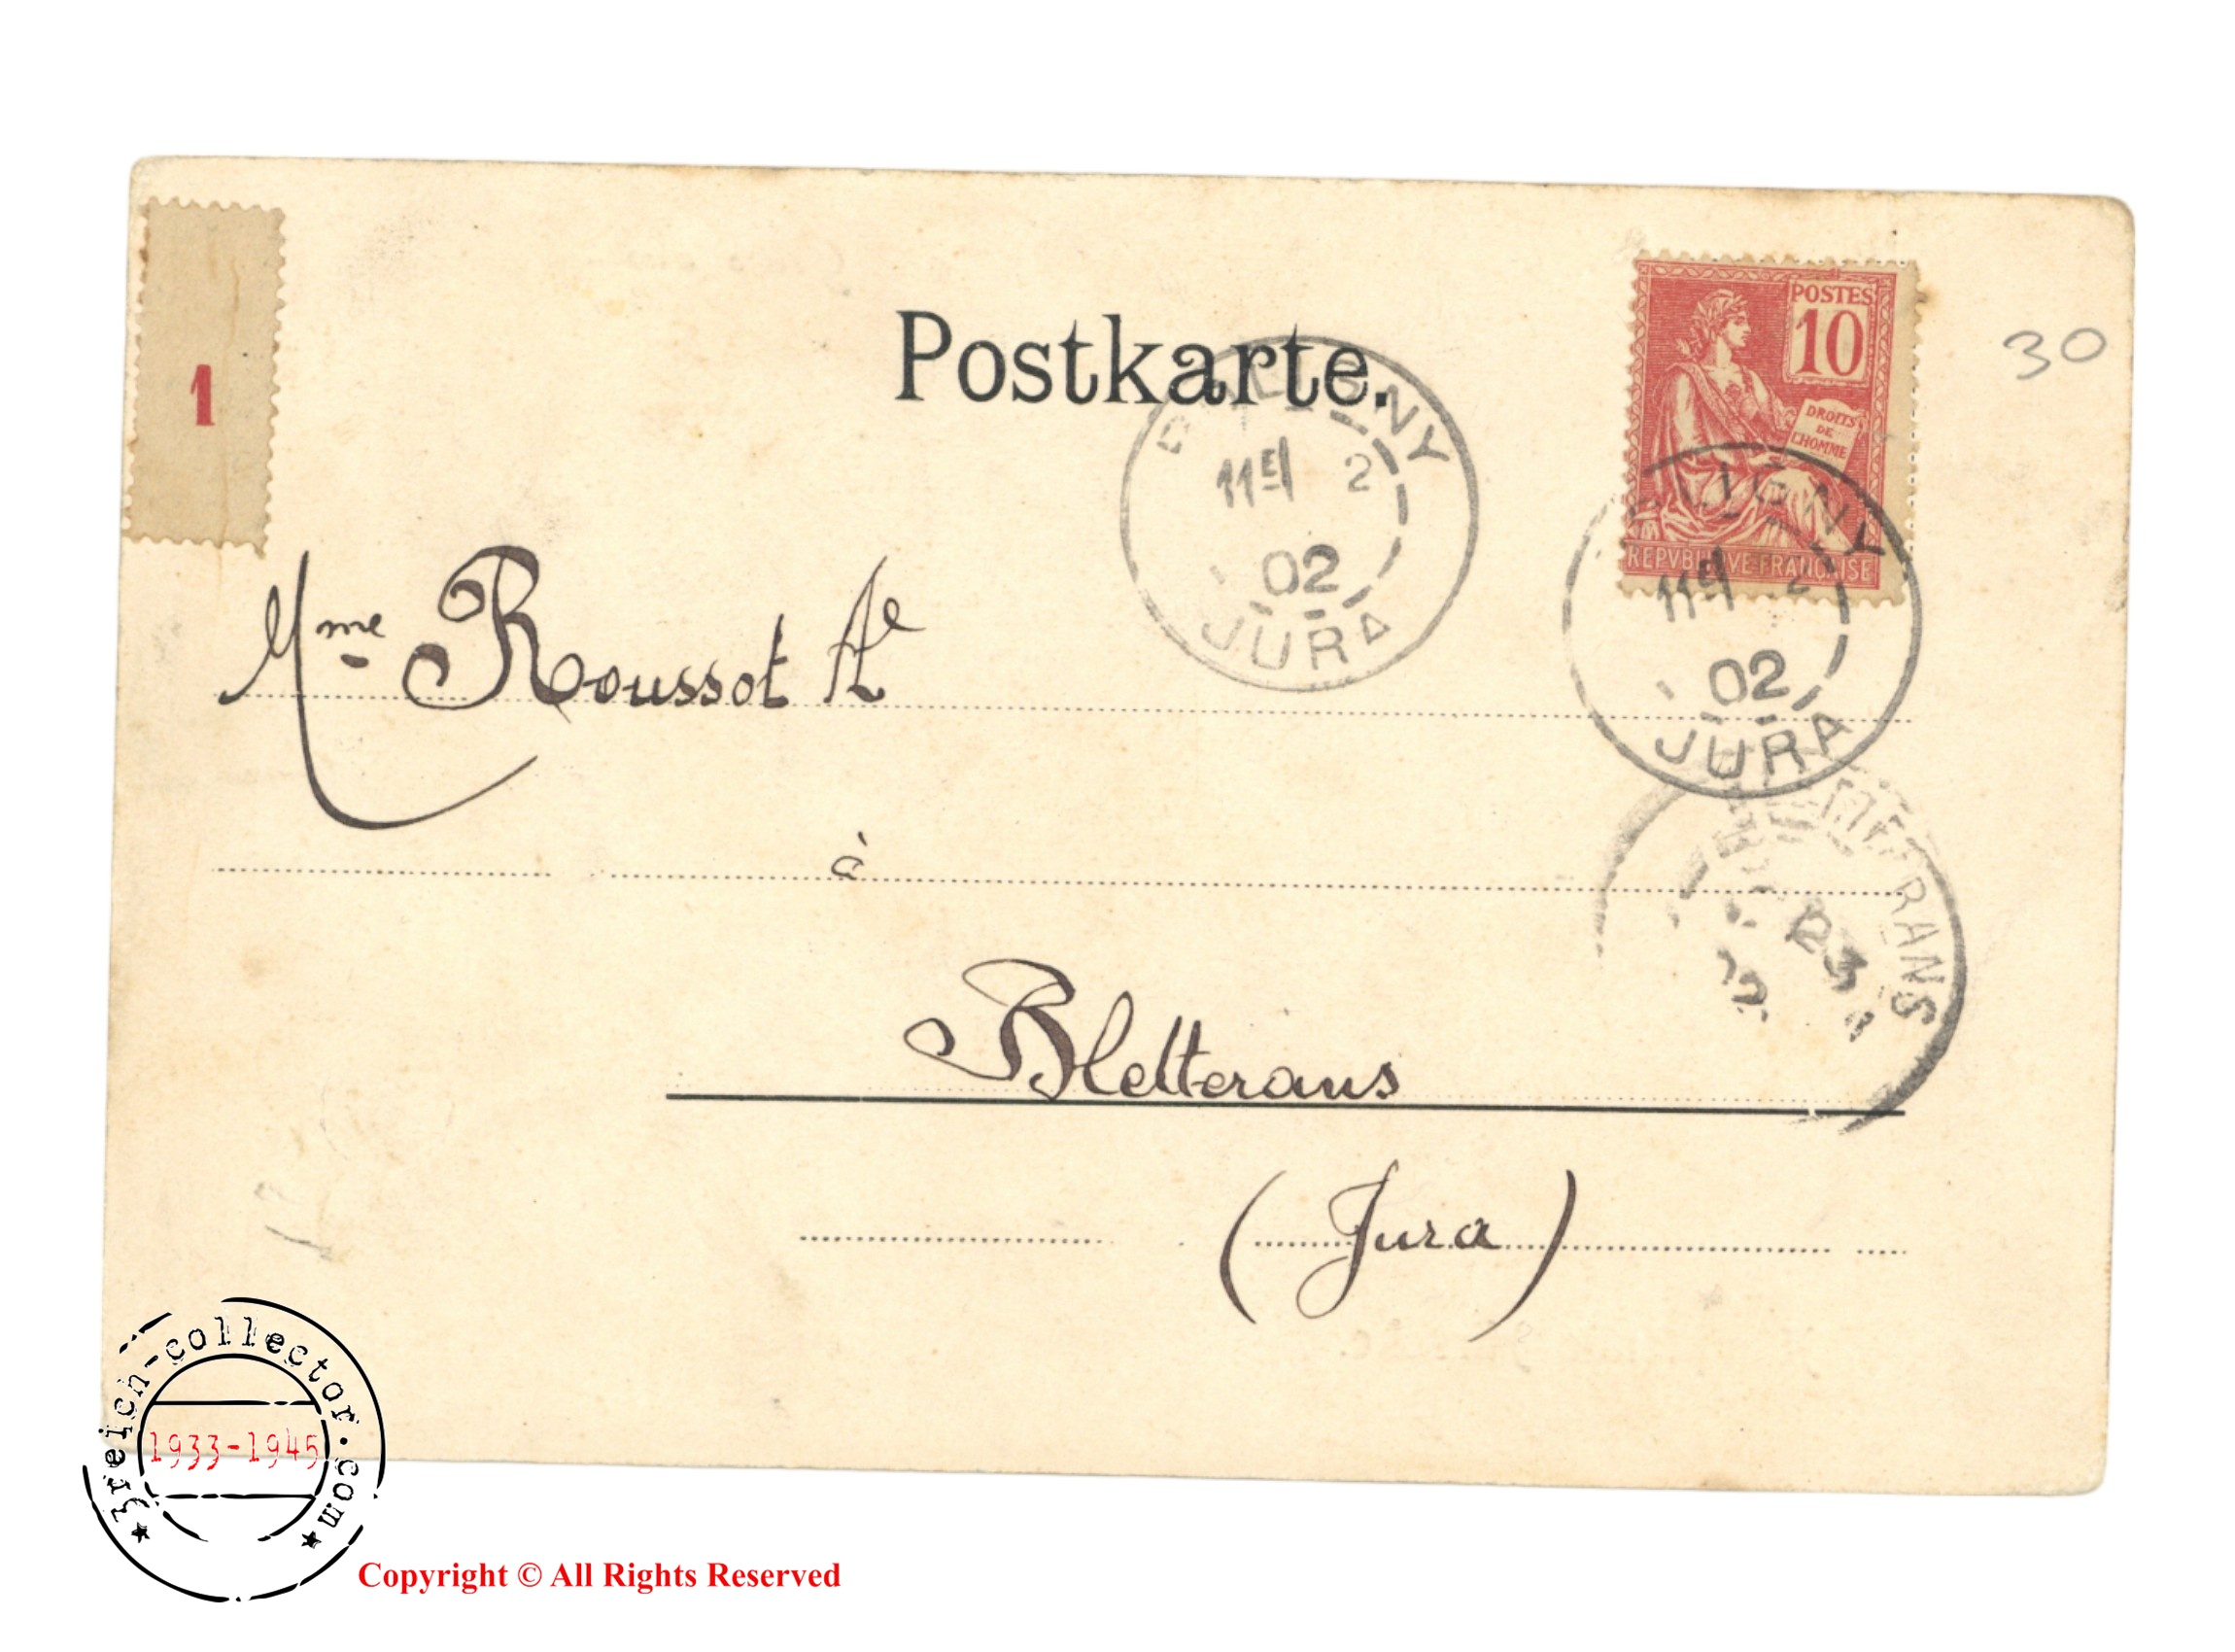 1
Postkarte.
POSTES
10
DROITS
DE
L'HOMME
REPVBLIQVE FRANÇAISE
30
11E 2
02
JURA
11E 2
02
JURA
Mme Roussot Ae
à
Bletterans
(Jura)
3reich-collector.com
1933-1945
Copyright © All Rights Reserved